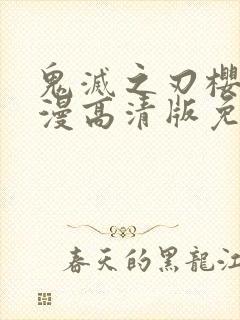 鬼滅之刃櫻
漫高清版免
春天的黑龍江